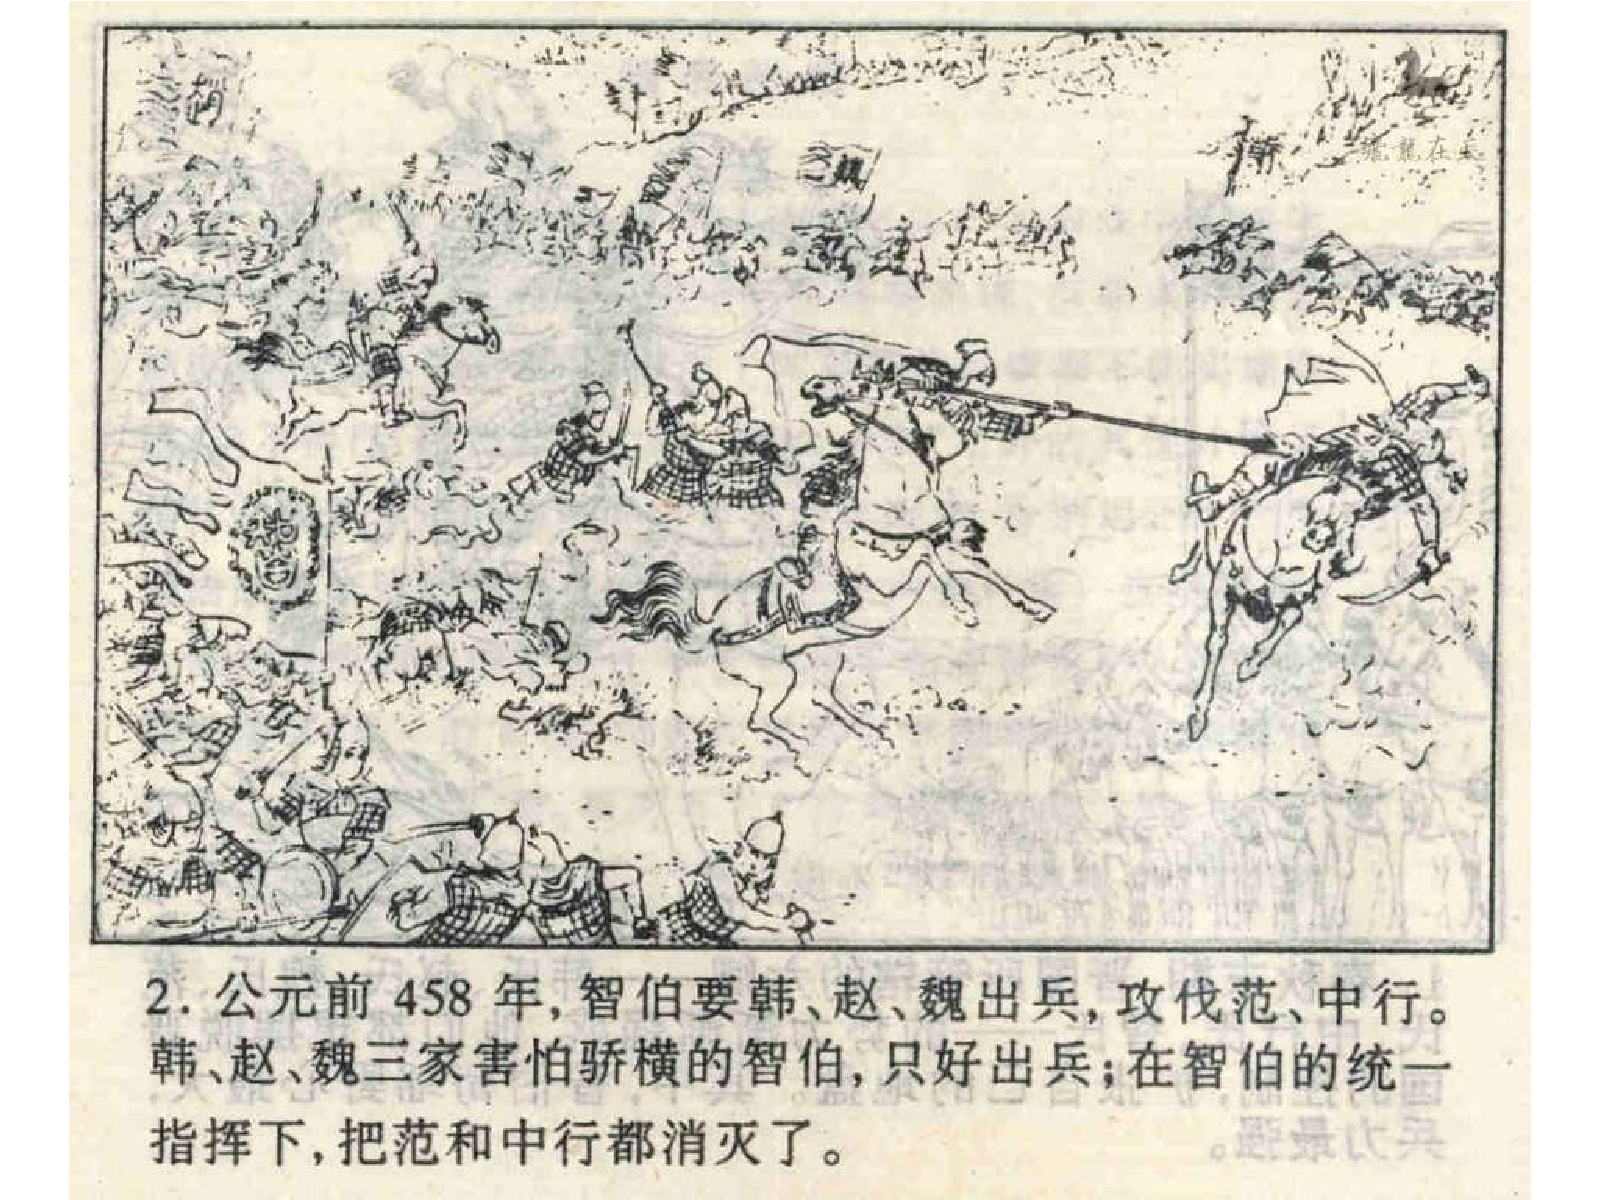 趙
魏
智
飛龍在天
2. 公元前 458 年，智伯要韩、赵、魏出兵，攻伐范、中行。
韩、赵、魏三家害怕骄横的智伯，只好出兵；在智伯的统一
指挥下，把范和中行都消灭了。